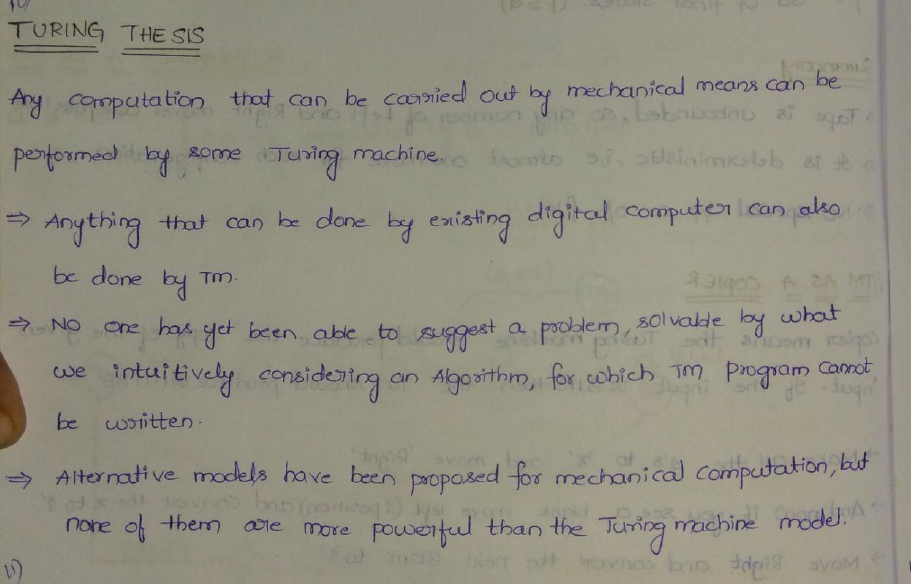 10)
TURING THESIS
Any computation that can be carried out by mechanical means can be
performed by some Turing machine.
⇒ Anything that can be done by existing digital computer can also
be done by TM.
⇒ No one has yet been able to suggest a problem, solvable by what
we intuitively considering an Algorithm, for which TM program cannot
be written.
⇒ Alternative models have been proposed for mechanical computation, but
none of them are more powerful than the Turing machine model.
11)